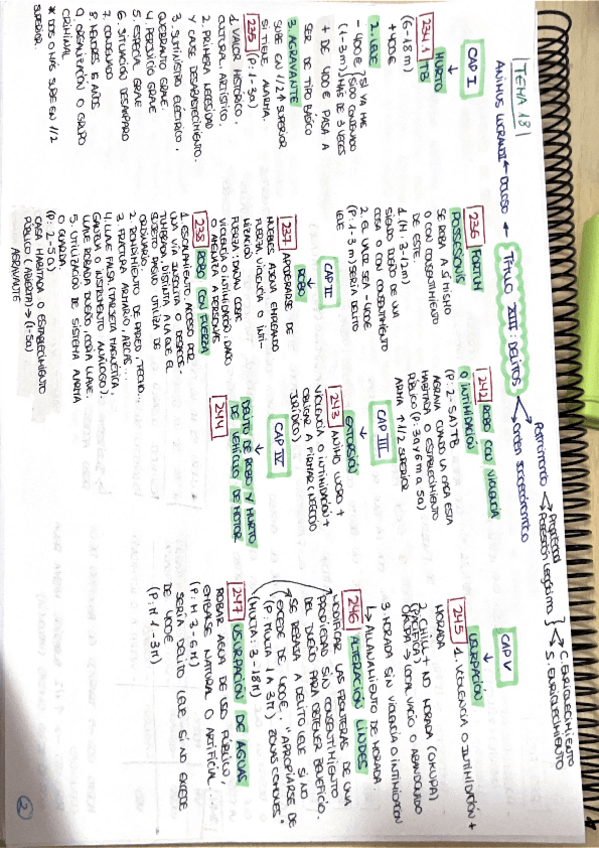 TEMA 18
ANIMUS LUCRANDI ← DOLOSO ← TÍTULO XIII: DELITOS
Patrimonio
Propiedad
Posesión legítima
C. ENRIQUECIMIENTO
S. ENRIQUECIMIENTO
Orden socioeconómico
CAP I
234.1 HURTO
TB
(6-18 m)
+400€
2. LEVE
- 400€ (SI VA MAS
(1-3m)
SIDO CONDENADO
MAS DE 3 VECES
+ DE 400€ PASA A
SER DE TIPO BÁSICO
3. AGRAVANTE
SUBE EN 1/2 ↑ SUPERIOR
SI TIENE ALARMA.
235 (P: 1-3a)
1. VALOR HISTÓRICO,
CULTURAL, ARTÍSTICO.
2. PRIMERA NECESIDAD
Y CAUSE DESABASTECIMIENTO.
3. SUMINISTRO ELÉCTRICO,
QUEBRANTO GRAVE.
4. PERJUICIO GRAVE
5. ESPECIAL GRAVE
6. SITUACIÓN DESAMPARO
7. CONDENADO
8. MENORES 16 AÑOS
9. ORGANIZACIÓN O GRUPO
CRIMINAL
* DOS O MÁS SUBE EN 1/2
SUPERIOR.
236 FORTUM
POSSESIONIS
SE ROBA A SÍ MISMO
O CON CONSENTIMIENTO
DE ESTE.
1. (M: 3-12m)
SIENDO DUEÑO DE UNA
COSA O CON CONSENTIMIENTO
2. EL VALOR SEA -400€
(P: 1-3 m) SERÍA DELITO
LEVE
CAP II
ROBO
237 APODERARSE DE
MUEBLES AJENA EMPLEANDO
FUERZA, VIOLENCIA O INTI-
MIDACIÓN
FUERZA: DAÑAN COSAS
VIOLENCIA O INTIMIDACIÓN: DAÑO
O AMENAZA A PERSONAS
238 ROBO CON FUERZA
1. ESCALAMIENTO, ACCESO POR
UNA VÍA INSÓLITA O DESACOS-
TUMBRADA, DISTINTA A LA QUE EL
SUJETO PASIVO UTILIZA DE
ORDINARIO.
2. ROMPIMIENTO DE PARED, TECHO...
3. FRACTURA ARMARIO, ARCAS...
4. LLAVE FALSA (TARJETA MAGNÉTICA,
GANZÚA O INSTRUMENTO ANÁLOGO).
LLAVE ROBADA DUEÑO, COPIA LLAVE.
5. UTILIZACIÓN DE SISTEMA ALARMA
O GUARDA.
(P: 2-5a)
CASA HABITADA O ESTABLECIMIENTO
PÚBLICO ABIERTA) → (1-5a)
AGRAVANTE
242 ROBO CON VIOLENCIA
O INTIMIDACIÓN
(P: 2-5A) TB
AGRAVA CUANDO LA CASA ESTA
HABITADA O ESTABLECIMIENTO
PÚBLICO (P: 3a y 6 m a 5a)
ARMA ↑ 1/2 SUPERIOR
CAP III
EXTORSIÓN
243 ÁNIMO LUCRO +
VIOLENCIA O INTIMIDACIÓN +
OBLIGAR A FIRMAR (NEGOCIO
JURÍDICO)
CAP IV
DELITO DE ROBO Y HURTO
DE VEHÍCULO DE MOTOR
244
CAP V
USURPACIÓN
245 1. VIOLENCIA O INTIMIDACIÓN +
MORADA
2. CHILL + NO MORADA (OKUPA)
(PACÍFICA)
OKUPA → LOCAL VACÍO O ABANDONADO
3. MORADA SIN VIOLENCIA O INTIMIDACIÓN
↳ ALLANAMIENTO DE MORADA.
246 ALTERACIÓN LINDES
MODIFICAR LAS FRONTERAS DE UNA
PROPIEDAD SIN CONSENTIMIENTO
DEL DUEÑO PARA OBTENER BENEFICIO.
SE REBAJA A DELITO LEVE SI NO
EXCEDE DE 400€. "APROPIARSE DE
(P: MULTA 1 A 3M) ZONAS COMUNES"
(MULTA: 3-18M)
247 USURPACIÓN DE AGUAS
ROBAR AGUA DE USO PÚBLICO,
EMBALSE NATURAL O ARTIFICIAL
(P: M 3-6m)
SERÍA DELITO LEVE SI NO EXCEDE
DE 400€
(P: M 1-3M)
2